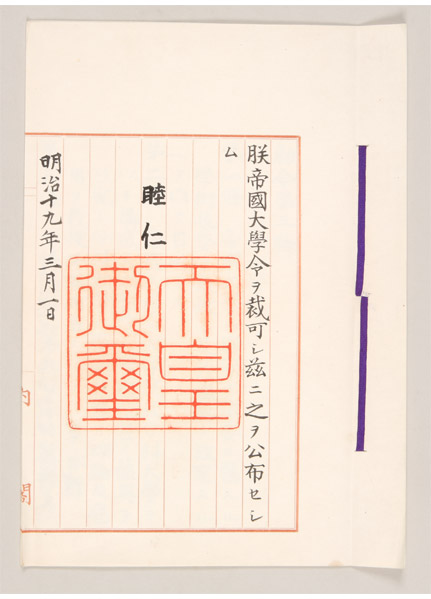 朕帝國大學令ヲ裁可シ茲ニ之ヲ公布セシ
ム
睦仁
天皇
御璽
明治十九年三月一日
内閣